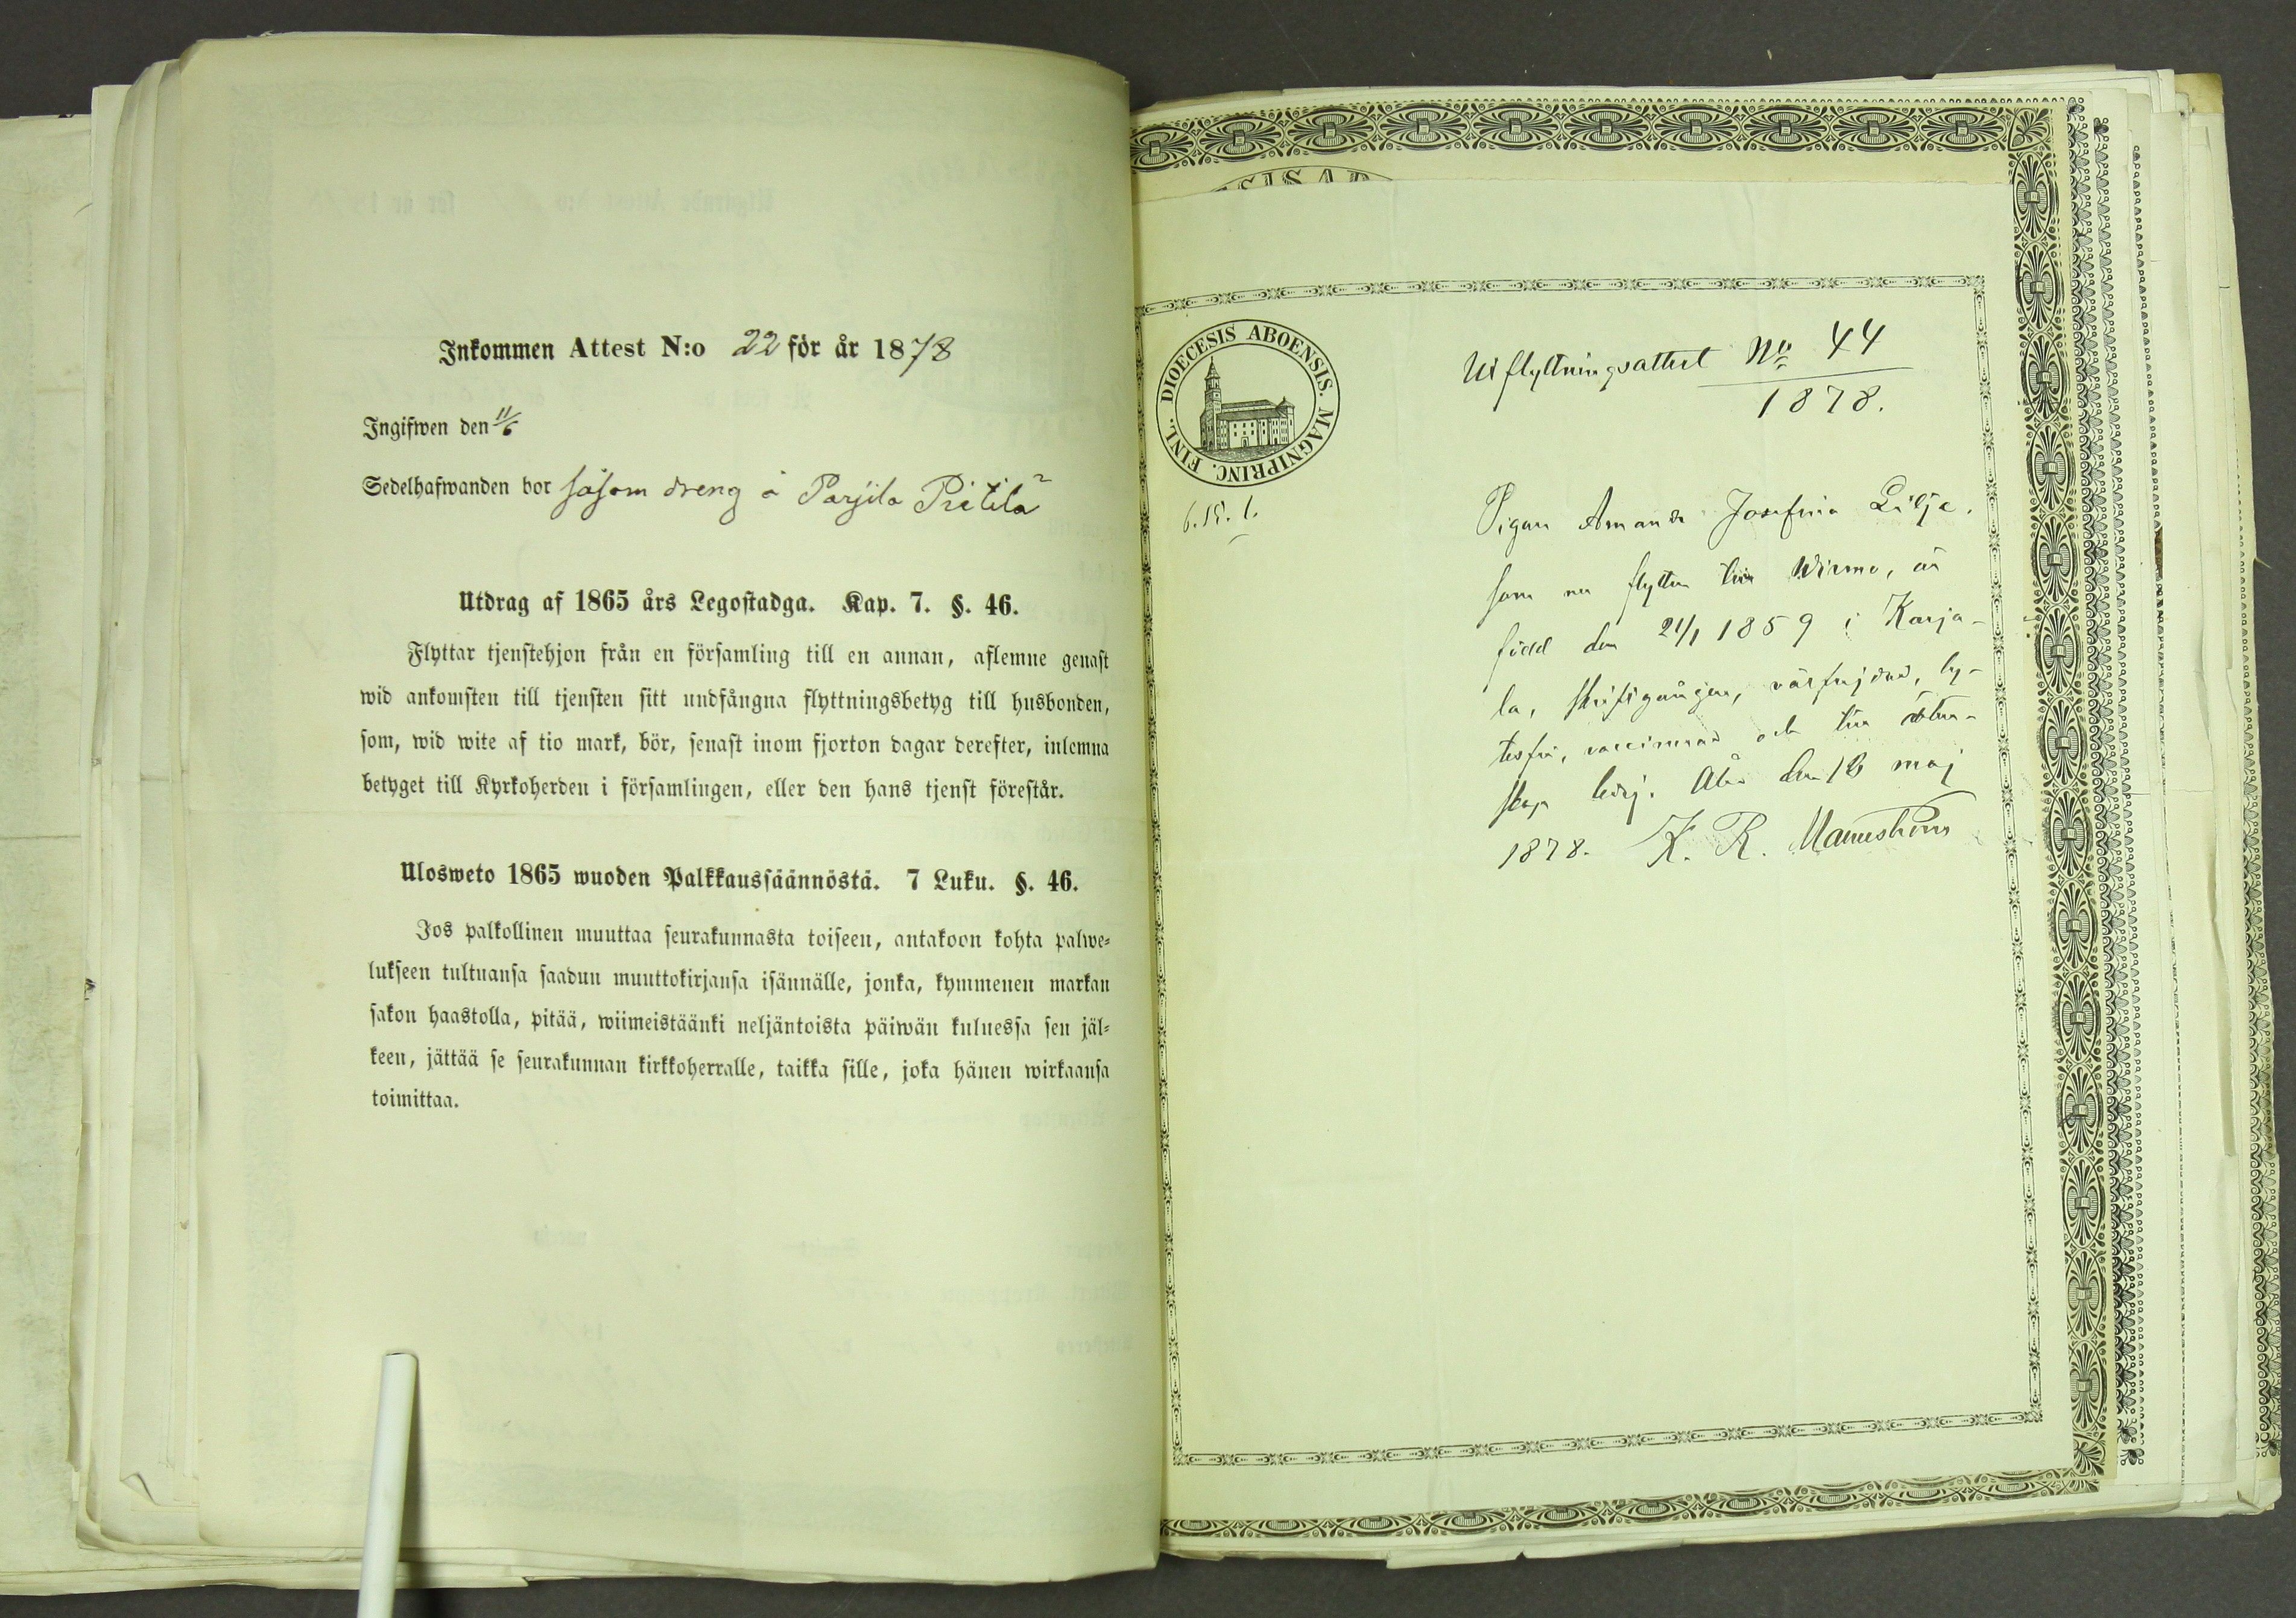 Inkommen Attest N:o 22 för år 1878
Ingifwen den 11/6
Sedelhafwanden bor såsom dreng å Parsila Pietilä
Utdrag af 1865 års Legostadga. Kap. 7. §. 46.
Flyttar tjenstehjon från en församling till en annan, aflemne genast
wid ankomsten till tjensten sitt undfångna flyttningsbetyg till husbonden,
som, wid wite af tio mark, bör, senast inom fjorton dagar derefter, inlemna
betyget till Kyrkoherden i församlingen, eller den hans tjenst förestår.
Ulosweto 1865 wuoden Palkkaussäännöstä. 7 Luku. §. 46.
Jos palkollinen muuttaa seurakunnasta toiseen, antakoon kohta palwe-
lukseen tultuansa saadun muuttokirjansa isännälle, jonka, kymmenen markan
sakon haastolla, pitää, wiimeistäänki neljäntoista päiwän kuluessa sen jäl-
keen, jättää se seurakunnan kirkkoherralle, taikka sille, joka hänen wirkaansa
toimittaa.
DIOECESIS ABOENSIS. MAGNIPRINC. FINL.
Utflyttningsattest No 44
1878.
6.15.1.
Pigan Amanda Josefina Lilja,
som nu flyttar till Wirmo, är
född den 21/1 1859 i Karja-
la, skriftgången, välfrejdad, ly-
tesfri, vaccinerad och till äkten-
skap ledig. Åbo den 18 maj
1878. K. R. Mannström